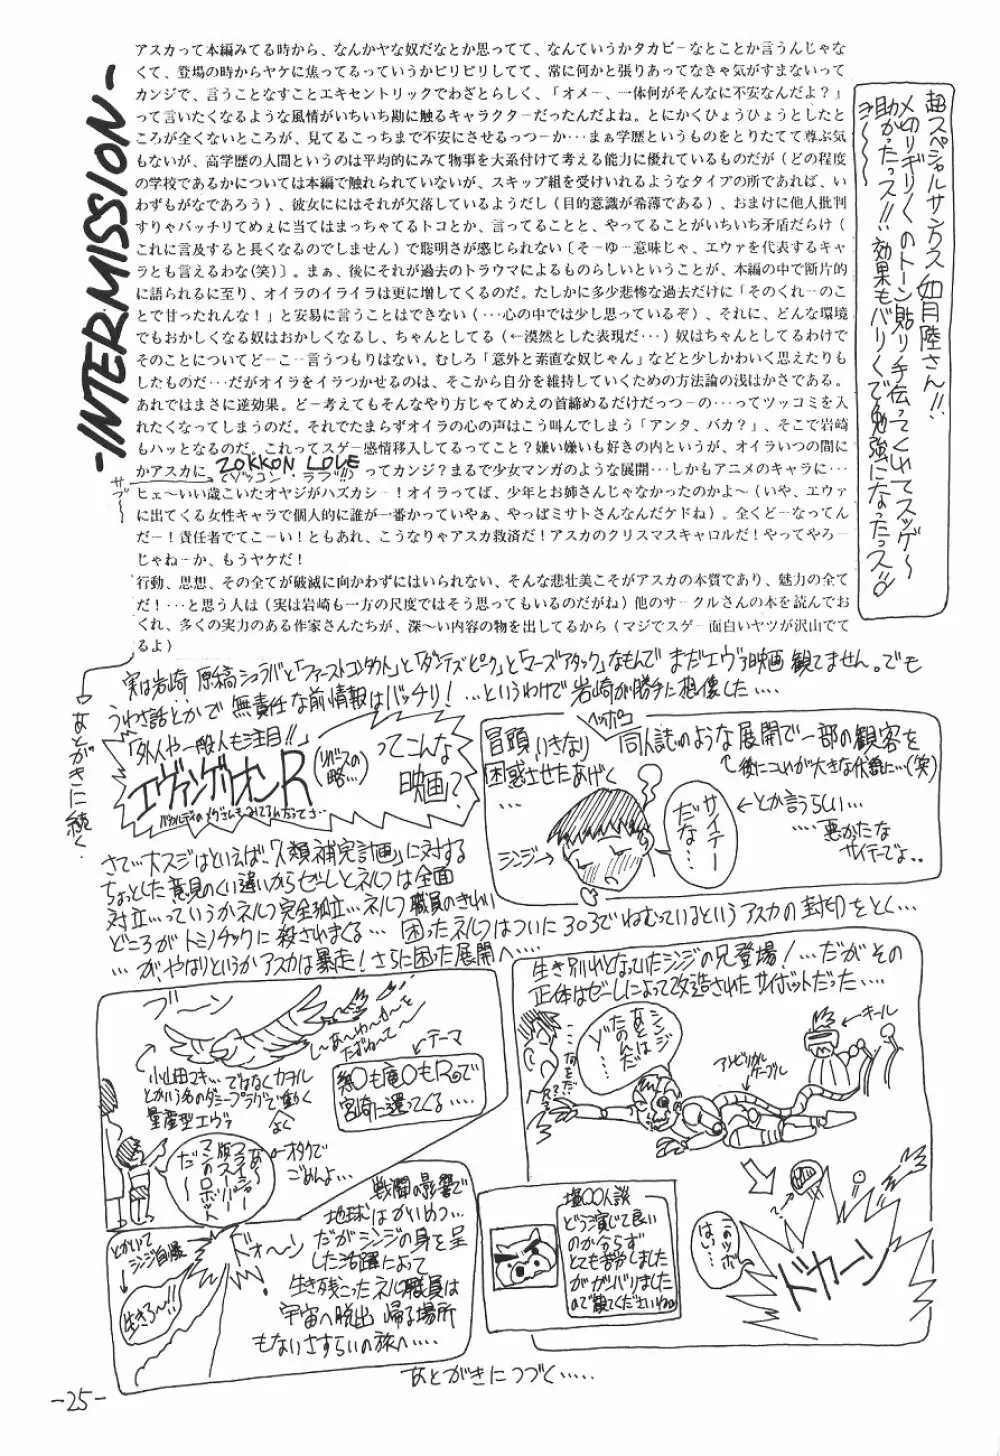 -INTERMISSION-
アスカって本編みてる時から、なんかヤな奴だなとか思ってて、なんていうかタカビーなとことか言うんじゃな
くて、登場の時からヤケに焦ってるっていうかピリピリしてて、常に何かと張りあってなきゃ気がすまないって
カンジで、言うことなすことエキセントリックでわざとらしく、「オメー、一体何がそんなに不安なんだよ？」
って言いたくなるような風情がいちいち勘に触るキャラクターだったんだよね。とにかくひょうひょうとしたと
ころが全くないところが、見てるこっちまで不安にさせるっつーか…まぁ学歴というものをとりたてて尊ぶ気
もないが、高学歴の人間というのは平均的にみて物事を大系付けて考える能力に優れているものだが（どの程度
の学校であるかについては本編で触れられていないが、スキップ組を受けいれるようなタイプの所であれば、い
わずもがなであろう）、彼女ににはそれが欠落しているようだし（目的意識が希薄である）、おまけに他人批判
すりゃバッチリてめぇに当てはまっちゃてるトコとか、言ってることと、やってることがいちいち矛盾だらけ（
これに言及すると長くなるのでしません）で聡明さが感じられない〔そーゆー意味じゃ、エヴァを代表するキャ
ラとも言えるわな(笑)〕。まぁ、後にそれが過去のトラウマによるものらしいということが、本編の中で断片的
に語られるに至り、オイラのイライラは更に増してくるのだ。たしかに多少悲惨な過去だけに「そのくれーのこ
とで甘ったれんな！」と安易に言うことはできない（…心の中では少し思っているぞ）、それに、どんな環境
でもおかしくなる奴はおかしくなるし、ちゃんとしてる（←漠然とした表現だ…）奴はちゃんとしてるわけで
そのことについてどーこー言うつもりはない。むしろ「意外と素直な奴じゃん」などと少しかわいく思えたりも
したものだ…だがオイラをイラつかせるのは、そこから自分を維持していくための方法論の浅はかさである。
あれではまさに逆効果。どー考えてもそんなやり方じゃてめえの首締めるだけだっつーの…ってツッコミを入
れたくなってしまうのだ。それでたまらずオイラの心の声はこう叫んでしまう「アンタ、バカ？」、そこで岩崎
もハッとなるのだ、これってスゲー感情移入してるってこと？嫌い嫌いも好きの内というが、オイラいつの間に
かアスカに ZOKKON LOVE ってカンジ？まるで少女マンガのような展開…しかもアニメのキャラに…
(ゾッコン・ラブ!!)
サブ〜
ヒェ〜いい歳こいたオヤジがハズカシー！オイラってば、少年とお姉さんじゃなかったのかよ〜（いや、エヴァ
に出てくる女性キャラで個人的に誰が一番かっていやぁ、やっぱミサトさんなんだケドね）。全くどーなってん
だー！責任者でてこーい！ともあれ、こうなりゃアスカ救済だ！アスカのクリスマスキャロルだ！やってやろー
じゃねーか、もうヤケだ！
行動、思想、その全てが破滅に向かわずにはいられない、そんな悲壮美こそがアスカの本質であり、魅力の全て
だ！…と思う人は（実は岩崎も一方の尺度ではそう思ってもいるのだがね）他のサークルさんの本を読んでお
くれ、多くの実力のある作家さんたちが、深〜い内容の物を出してるから（マジでスゲー面白いヤツが沢山でて
るよ）
あとがきに続く
超スペシャルサンクス 如月陸さん!!
〆切りギリギリのトーン貼り手伝ってくれてスッゲ〜
助かったっス!! 効果もバリバリで勉強になったっス!!
実は岩崎 原稿シュラバと「ファーストコンタクト」と「ダンテズピーク」と「マーズアタック」なもんで まだエヴァ映画観てません。でも
うわさ話とかで 無責任な前情報はバッチリ！…というわけで岩崎が勝手に想像した…
「外人や一般人も注目!!」
エヴァンゲリオンR
(リバースの略…)
ってこんな
映画？
冒頭いきなり
ヘッポコ
同人誌のような展開で一部の観客を
困惑させたあげく
…
後にコレが大きな伏線に…(笑)
シンジ→
サイテーだな…
←とか言うらしい…
…悪かたな
サイテーでよ…
さて…大スジはといえば、「人類補完計画」に対する
ちょっとした意見のくい違いからゼーレとネルフは全面
対立…っていうかネルフ完全孤立…ネルフ職員のきれい
どころがトミノチックに殺されまくる… 困ったネルフはついに303でねむっているというアスカの封印をとく…
…が、やはりというかアスカは暴走！さらに困った展開へ…
ブーン
小山田マキ…ではなくカヲル
とかいう名のダミープラグで動く
量産型エヴァ
←テーマ
宮崎に還ってくる…
あ〜
フライシャー版スーパーマンのロボットだ〜
←オタクで
ごめんよ…
とかいて
シンジ自爆
生きろ〜!!
ドォーン
戦闘の影響で
地球はかいめつ…
だがシンジの身を呈
した活躍によって
生き残ったネルフ職員は
宇宙へ脱出 帰る場所
もないさすらいの旅へ…
生き別れとなっていたシンジの兄登場！…だがその
正体はゼーレによって改造されたサイボットだった…
シンジ
あとはたのんだゾ
←キール
アンビリカル
ケーブル
このツボはい…
ドカーン
塩○○人談
どう演じて良い
のか分らず
とても苦労しました
がガンバリました
ので観てくださいね
あとがきにつづく……
-25-